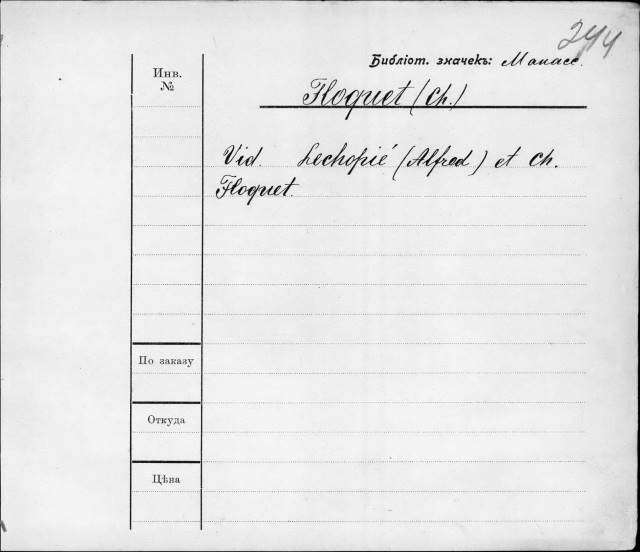 244
Библіот. значекъ: Манасс.
Инв.
№
Floquet (Ch.)
Vid. Lechopié (Alfred) et Ch.
Floquet.
По заказу
Откуда
Цѣна